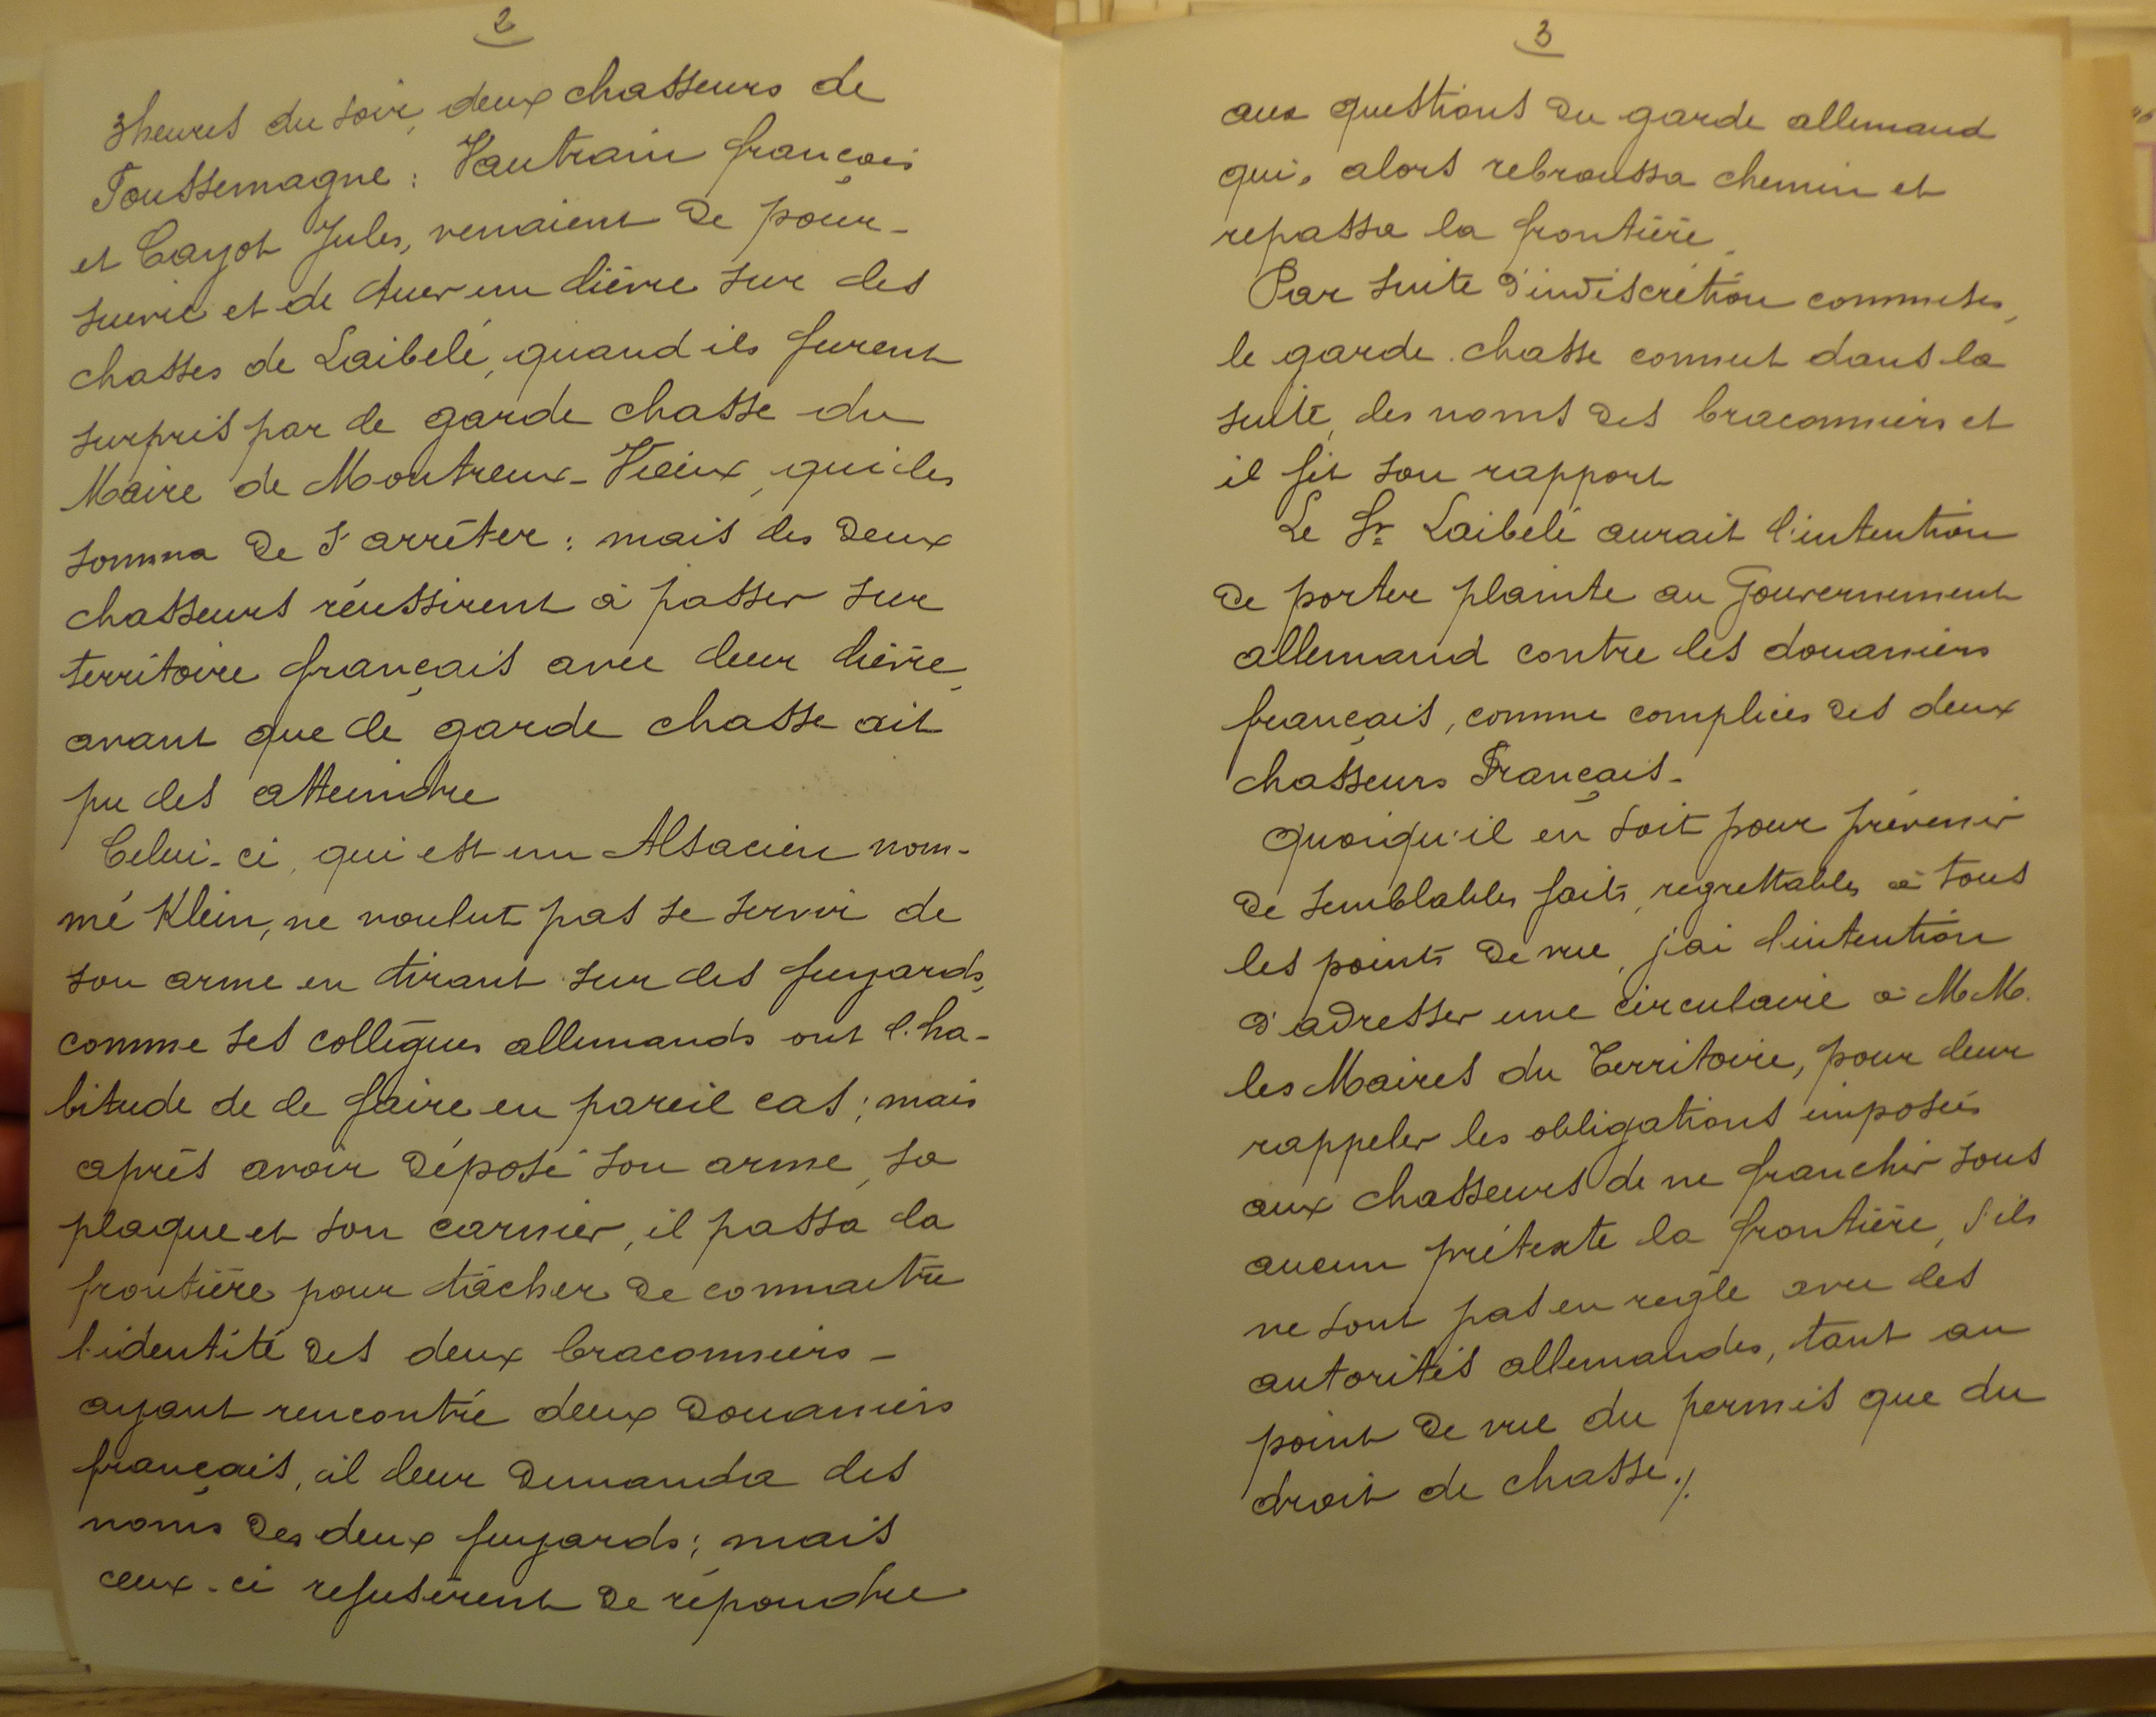 2
3 heures du soir, deux chasseurs de
Foussemagne : Vautrain françois
et Cayot Jules, venaient de pour-
suivre et de tuer un lièvre sur les
chasses de Laibelé, quand ils furent
surpris par le garde chasse du
Maire de Montreux-Vieux, qui les
somma de s'arrêter : mais les deux
chasseurs réussirent à passer sur
territoire français avec leur lièvre,
avant que le garde chasse ait
pu les atteindre
Celui-ci, qui est un Alsacien nom-
mé Klein, ne voulut pas se servir de
son arme en tirant sur les fuyards,
comme ses collègues allemands ont l'ha-
bitude de le faire en pareil cas ; mais
après avoir déposé son arme, sa
plaque et son carnier, il passa la
frontière pour tâcher de connaitre
l'identité des deux braconniers -
ayant rencontré deux douaniers
français, il leur demanda les
noms des deux fuyards ; mais
ceux-ci refusèrent de répondre
3
aux questions du garde allemand
qui, alors rebroussa chemin et
repassa la frontière.
Par suite d'indiscrétion commises,
le garde-chasse connut dans la
suite, les noms des braconniers et
il fit son rapport
Le Sr Laibelé aurait l'intention
de porter plainte au Gouvernement
allemand contre les douaniers
français, comme complices des deux
chasseurs Français.
Quoiqu'il en soit pour prévenir
de semblables faits, regrettables à tous
les points de vue, j'ai l'intention
d'adresser une circulaire à M.M.
les Maires du Territoire, pour leur
rappeler les obligations imposées
aux chasseurs de ne franchir sous
aucun prétexte la frontière, s'ils
ne sont pas en règle avec les
autorités allemandes, tant au
point de vue du permis que du
droit de chasse ./.